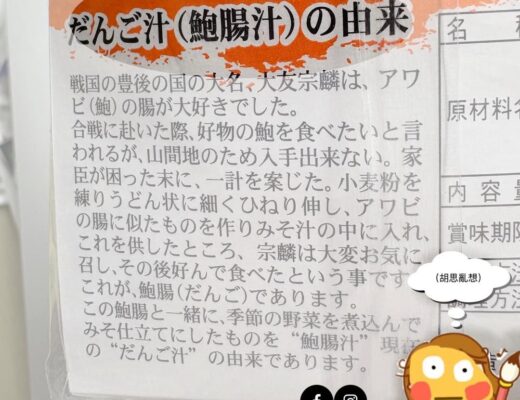 だんご汁（鮑腸汁）の由来
戦国の豊後の国の大名、大友宗麟は、アワ
ビ（鮑）の腸が大好きでした。
合戦に赴いた際、好物の鮑を食べたいと言
われるが、山間地のため入手出来ない。家
臣が困った末に、一計を案じた。小麦粉を
練りうどん状に細くひねり伸し、アワビ
の腸に似たものを作りみそ汁の中に入れ、
これを供したところ、宗麟は大変お気に
召し、その後好んで食べたという事です
これが、鮑腸（だんご）であります。
この鮑腸と一緒に、季節の野菜を煮込んで
みそ仕立てにしたものを“鮑腸汁”現在
の“だんご汁”の由来であります。
名
原材料名
内容量
賞味期限
（胡思亂想）